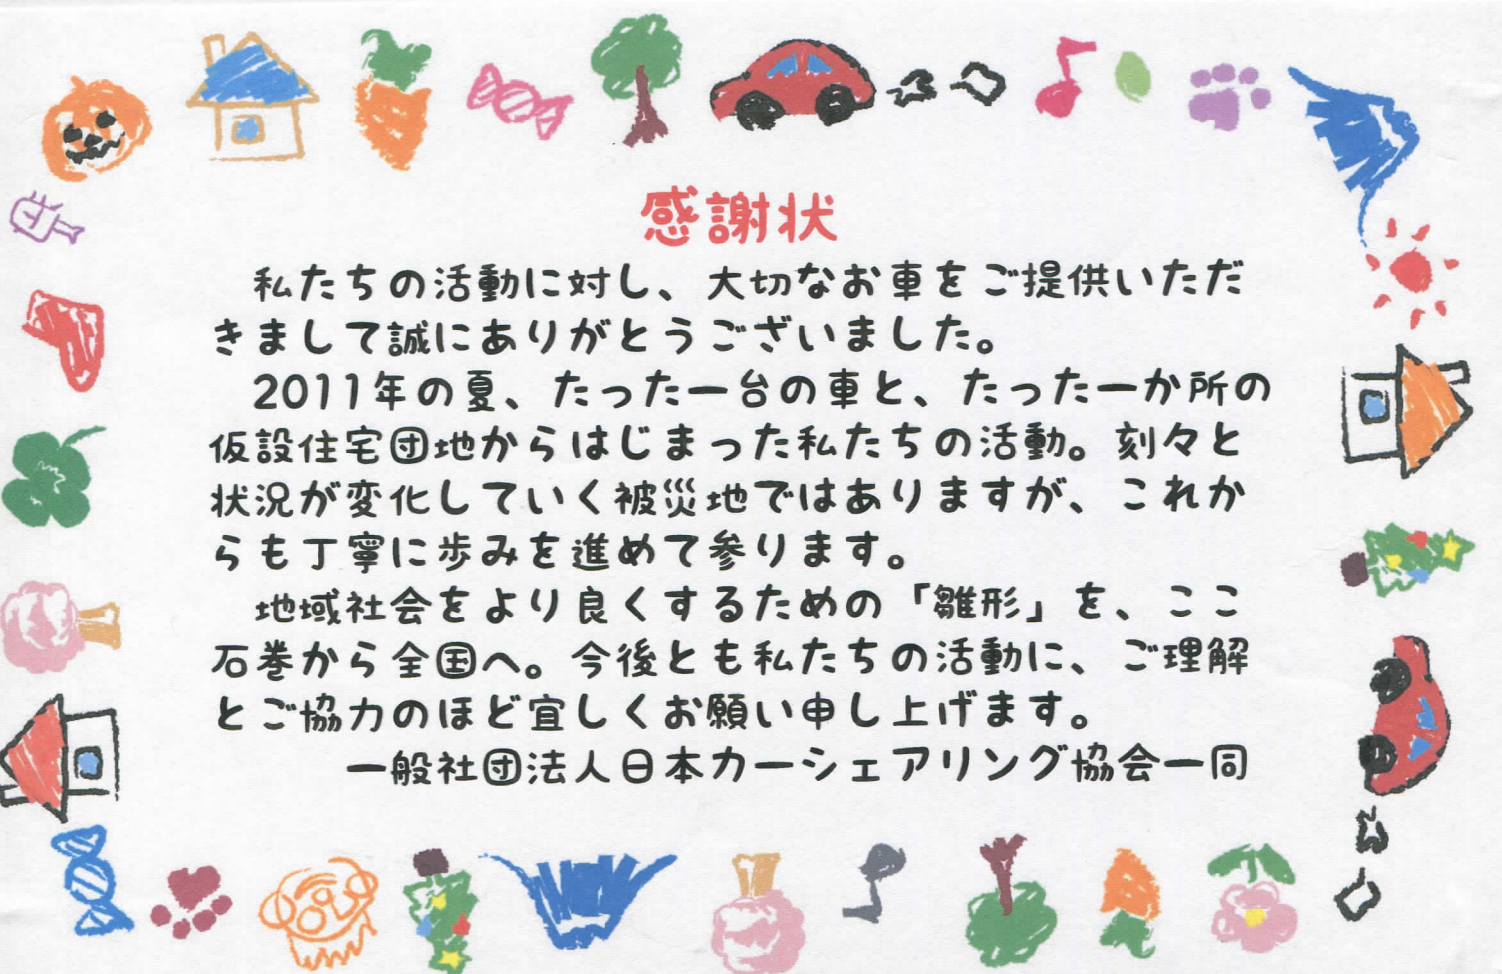 感謝状
私たちの活動に対し、大切なお車をご提供いただ
きまして誠にありがとうございました。
2011年の夏、たった一台の車と、たった一か所の
仮設住宅団地からはじまった私たちの活動。刻々と
状況が変化していく被災地ではありますが、これか
らも丁寧に歩みを進めて参ります。
地域社会をより良くするための「雛形」を、ここ
石巻から全国へ。今後とも私たちの活動に、ご理解
とご協力のほど宜しくお願い申し上げます。
一般社団法人日本カーシェアリング協会一同